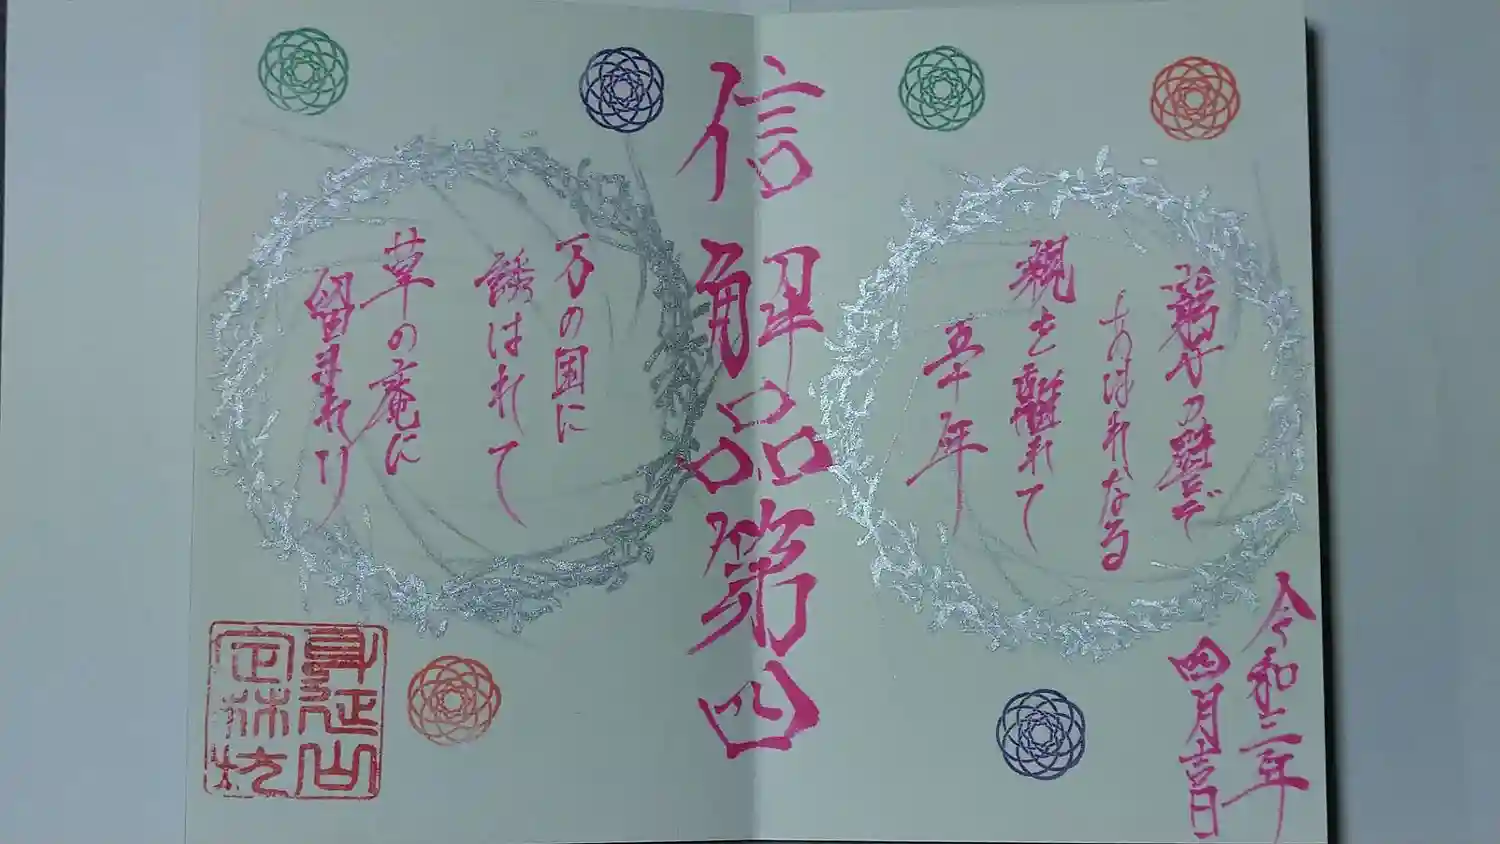 令和三年
四月吉日
窮子の譬で
あはれなる
親を離れて
五十年
信解品第四
万の国に
誘はれて
草の庵に
留まれり
身延山
定林坊